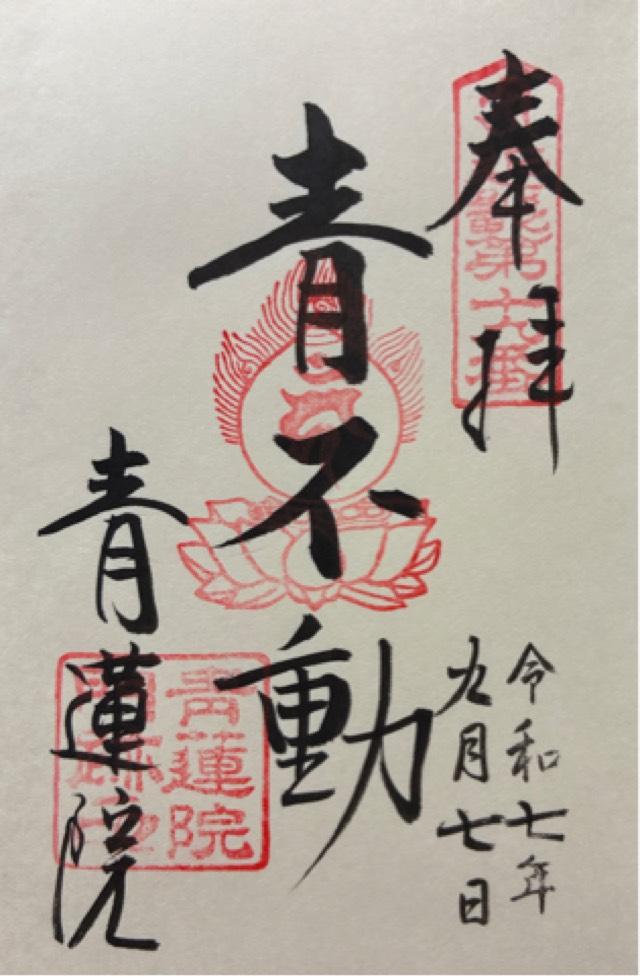 奉拝
第十九番
令和七年
九月七日
青不動
青蓮院
青蓮院